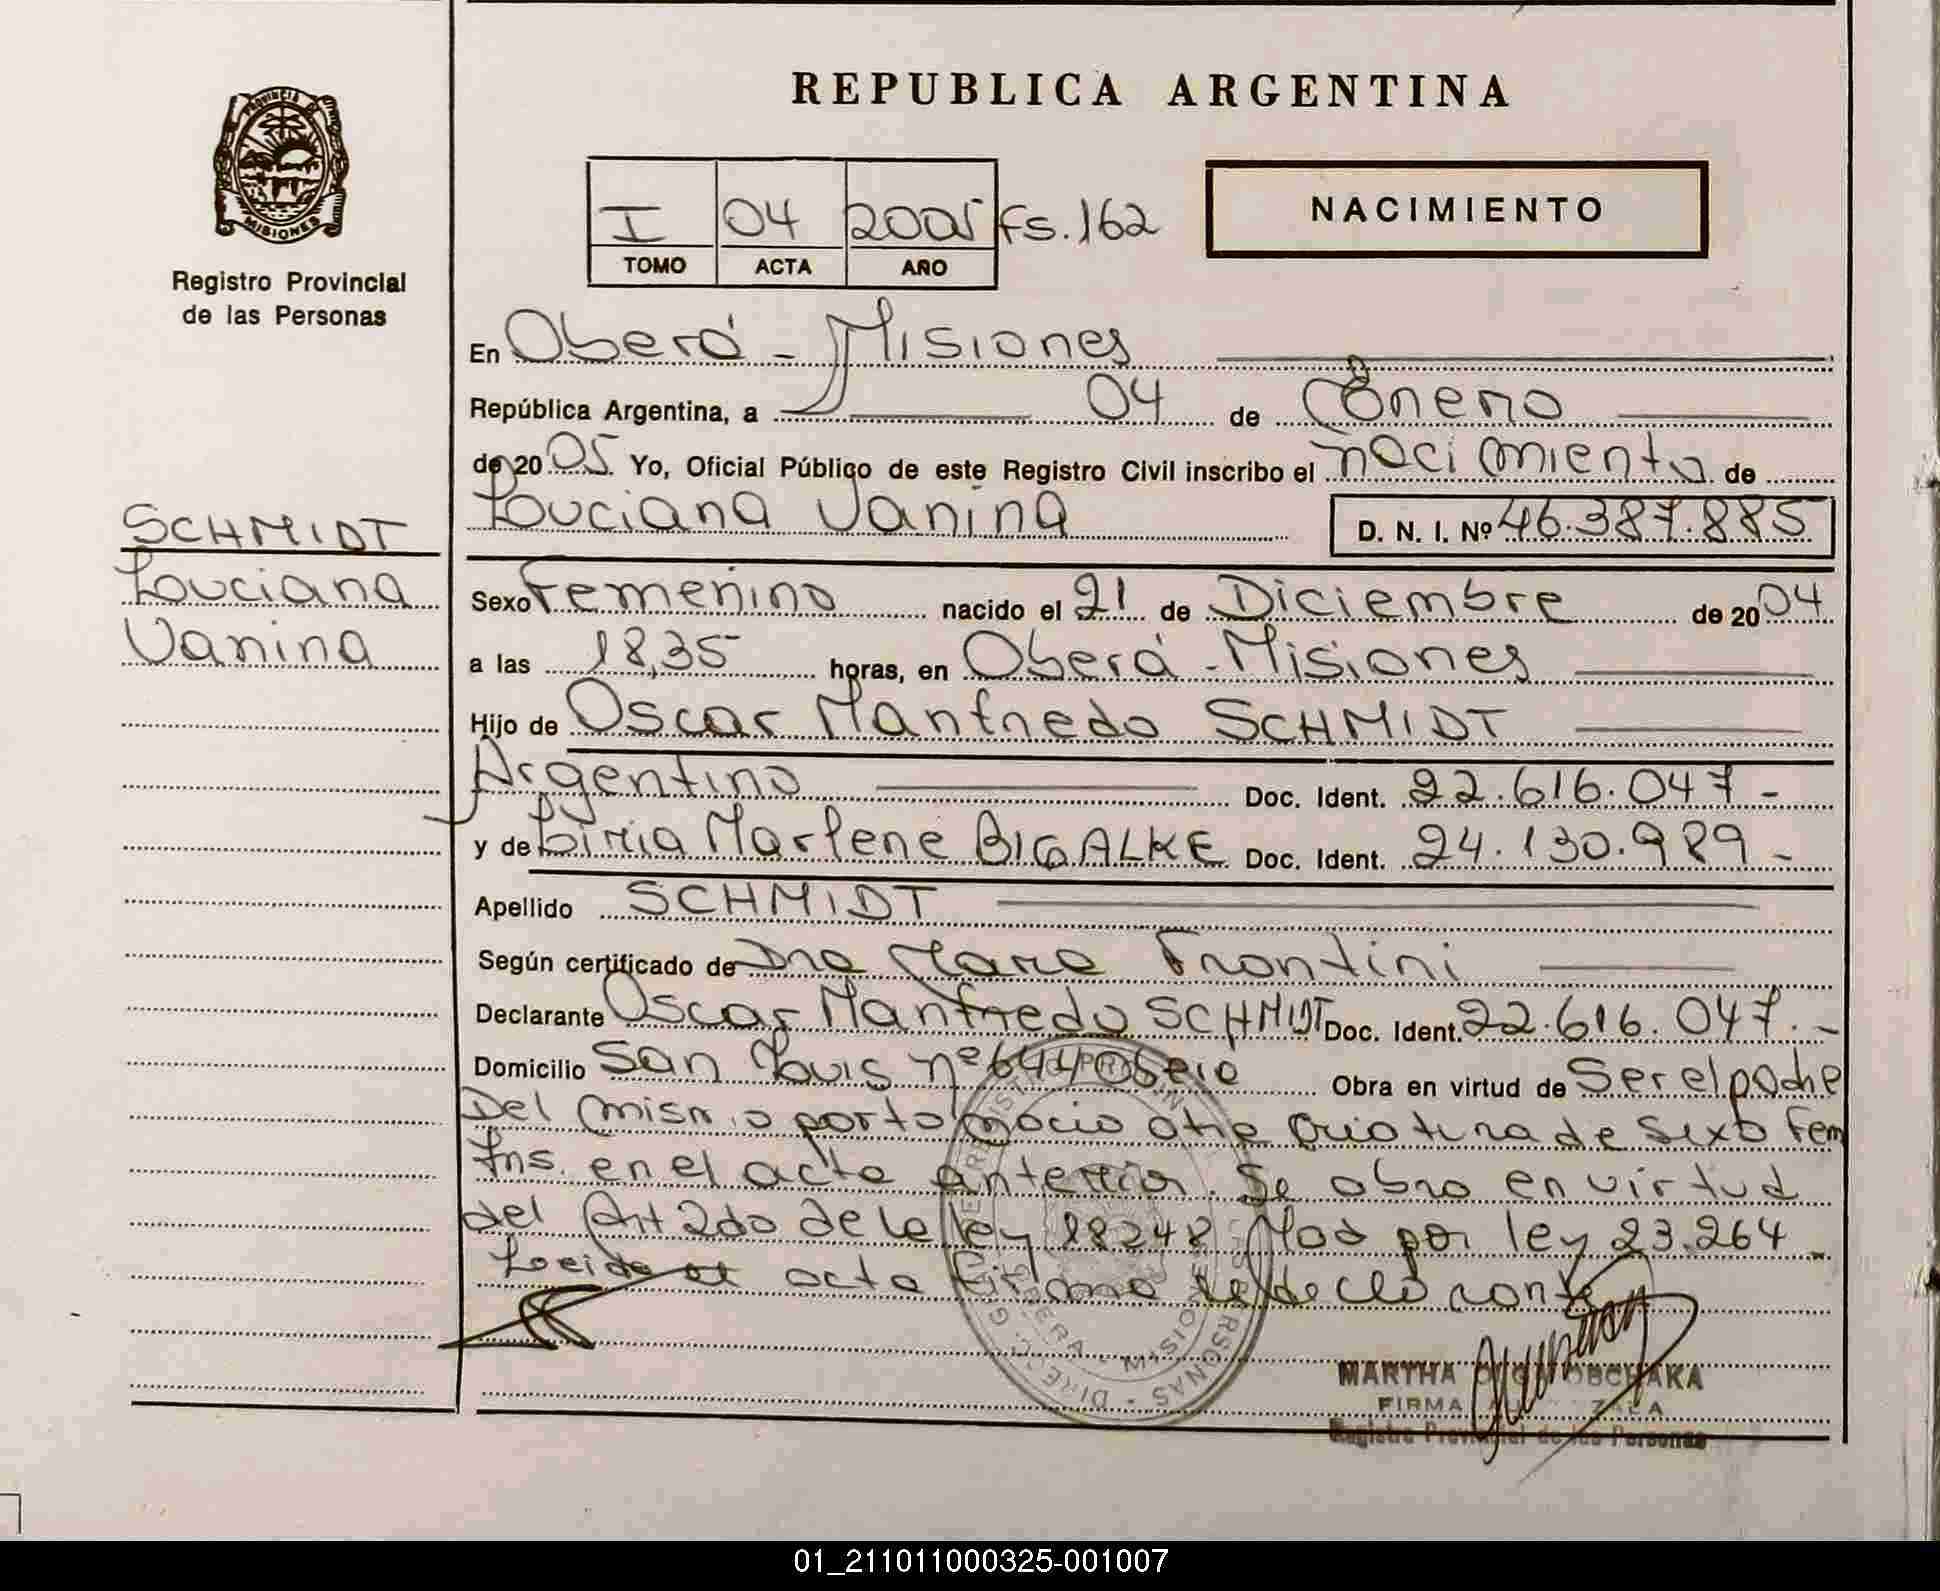 REPUBLICA ARGENTINA
PROVINCIA DE
MISIONES
Registro Provincial
de las Personas
I 04 2005 Fs. 162
TOMO ACTA AÑO
NACIMIENTO
En Oberá - Misiones
República Argentina, a 04 de Enero
de 2005 Yo, Oficial Público de este Registro Civil inscribo el nacimiento de
Louciana Vanina D. N. I. Nº 46.387.885
SCHMIDT
Louciana
Vanina
Sexo Femenino nacido el 21 de Diciembre de 2004
a las 18,35 horas, en Oberá - Misiones
Hijo de Oscar Manfredo SCHMIDT
Argentino Doc. Ident. 22.616.047-
y de Liria Marlene BIGALKE Doc. Ident. 24.130.989-
Apellido SCHMIDT
Según certificado de Dra Mara Frontini
Declarante Oscar Manfredo SCHMIDT Doc. Ident. 22.616.047.-
Domicilio San Louis nº 644 Oberá Obra en virtud de Ser el padre
Del mismo parto nacio otra criatura de sexo Fem
Ins. en el acta anterior. Se obra en virtud
del Art 2do de la ley 18248 Mod por ley 23.264
Leida el acta firma el declarante
MARTHA
FIRMA
Registro Provincial de las Personas
OBERA - MISIONES
01_211011000325-001007